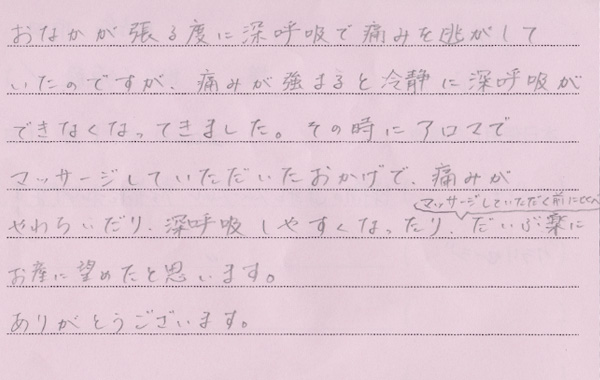 おなかが張る度に深呼吸で痛みを逃がして
いたのですが、痛みが強まると冷静に深呼吸が
できなくなってきました。その時にアロマで
マッサージしていただいたおかげで、痛みが
マッサージしていただく前に比べ
やわらいだり、深呼吸しやすくなったり、だいぶ楽に
お産に望めたと思います。
ありがとうございます。